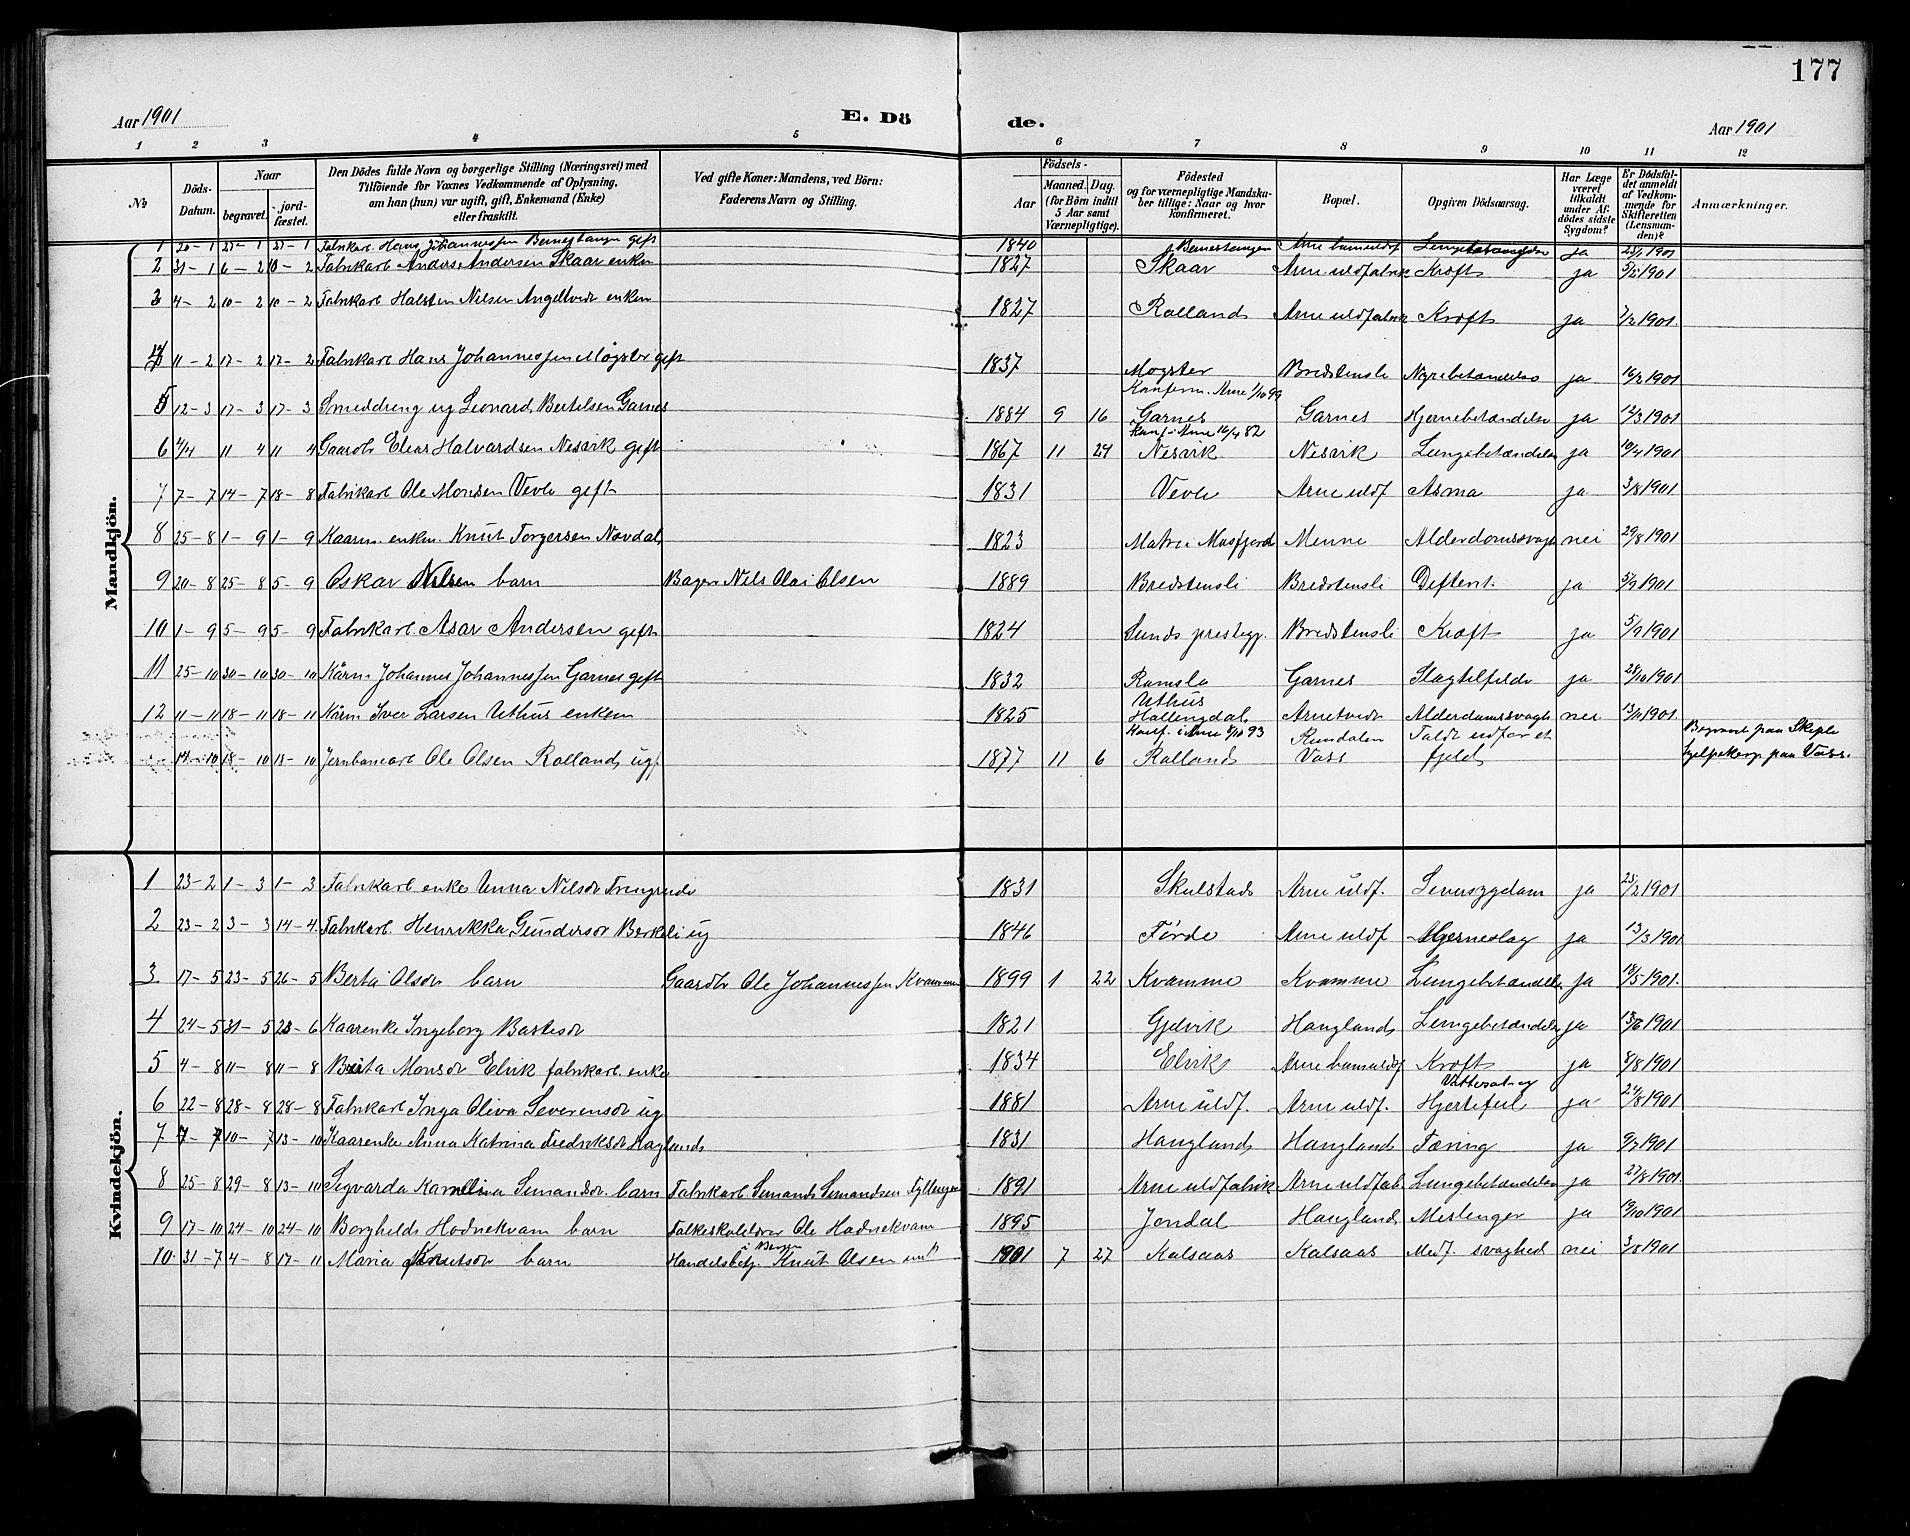 177
Aar 1901 E. Dö de. Aar 1901
1 2 3 4 5 6 7 8 9 10 11 12
№ Döds-Datum. Naar begravet. jord-fæstet. Den Dödes fulde Navn og borgerlige Stilling (Næringsvei) med Tilföiende for Voxnes Vedkommende af Oplysning, om han (hun) var ugift, gift, Enkemand (Enke) eller fraskilt. Ved gifte Koner: Mandens, ved Börn: Faderens Navn og Stilling. Födsels- Aar Maaned. Dag. (for Börn indtil 5 Aar samt Værnepligtige). Födested og for værnepligtige Mandska-ber tillige: Naar og hvor konfirmeret. Bopæl. Opgiven Dödsaarsag. Har Læge været tilkaldt under Af-dödes sidste Sygdom? Er Dödsfal-det anmeldt af Vedkom-mende for Skifteretten (Lensman-den)? Anmærkninger.
Mandkjön.
1 20-1 27-1 27-1 Fabrikarb. Hans Johannessen Bernestangen gift 1840 Bernestangen Arne bomuldsf Lungebetændelse ja 23/1 1901
2 31-1 6-2 10-2 Fabrikarb Anders Andersen Skaar enkem 1827 Skaar Arne uldfabrik Kræft ja 5/2 1901
3 4-2 10-2 10-2 Fabrikarb Halsten Nilsen Angeltvedt enkem 1827 Rolland Arne uldfabrik Kræft ja 7/2 1901
4 11-2 17-2 17-2 Fabrikarb Hans Johannessen Møgster gift 1837 Møgster Bredstensli Nyrebetændelse ja 16/2 1901
5 12-3 17-3 17-3 Smeddreng ug Leonard Bertelsen Garnes 1884 9 16 Konferm. Arne 1/10 99 Garnes Garnes Hjernebetændelse ja 12/3 1901
6 4/4 11 4 11 4 Gaardb Elias Halvardsen Nesvik gift 1867 11 24 Konf i Arne 16/4 82 Nesvik Nesvik Lungebetændelse ja 10/4 1901
7 7-7 14-7 18-8 Fabrikarb Ole Monsen Vevle gift 1831 Vevle Arne uldf Asma ja 3/8 1901
8 25-8 1-9 1-9 Kaarm. enkm. Knut Torgersen Novdal 1823 Matre i Masfjord Menne Alderdomssvagh nei 29/8 1901
9 20-8 25-8 5-9 Oskar Nilsen barn Bager Nils Olai Olsen 1889 Bredstensli Bredstensli Difterit. ja 5/9 1901
10 1-9 5-9 5-9 Fabrikarb. Asar Andersen gift 1824 Sunds prestegj. Bredstensli Kræft ja 5/9 1901
11 25-10 30-10 30-10 Kårm Johannes Johannessen Garnes gift 1832 Ramslo Garnes Slagtilfelde ja 28/10 1901
12 11-11 18-11 18-11 Kårm Iver Larsen Uthus enkem 1825 Uthus Hallingdal Arnetvedt Alderdomssvagh nei 13/11 1901
14-10 18-10 18-10 Jernbanearb Ole Olsen Rolland ugf 1877 11 6 Konf. i Arne 1/10 93 Rolland Rundalen Voss Faldt udfor et fjeld Begravet paa Skeple hjelpekirkeg. paa Voss.
Kvindekjön.
1 23-2 1-3 1-3 Fabrikarb enke Anna Nilsdr Trengereide 1831 Skulstad Arne uldf. Leversygdom ja 25/2 1901
2 23-2 3-3 14-4 Fabrikarb. Henrikka Gundersdr Berkeli ug 1846 Førde Arne uldf Hjerneslag ja 13/3 1901
3 17-5 23-5 26-5 Berta Olsdr barn Gaardbr Ole Johannessen Kvamme 1899 1 22 Kvamme Kvamme Lungebetændelse ja 18/5 1901.
4 24-5 31-5 23-6 Kaarenke Ingeborg Bastesdr 1821 Gjelvik Haugland Lungebetændelse ja 13/6 1901
5 4-8 11-8 11-8 Brita Monsdr Elvik fabrikarb. enke 1834 Elvik Arne bomuldsf Kræft ja 8/8 1901
6 22-8 28-8 28-8 Fabrikarb Inga Oliva Severensdr ug 1881 Arne uldf. Arne uldf. Vattersot og Hjertefeil ja 24/8 1901
7 7-7 10-7 13-10 Kaarenke Anna Katrina Fredriksdr Haglands 1831 Haugland Haugland Tæring ja 9/7 1901
8 25-8 29-8 13-10 Sigvarda Kamelina Simonsdr. barn Fabrikarb Simon Simonsen Fyllingen 1891 Arne uldfabrik Arne uldfab. Lungebetændelse ja 27/8 1901
9 17-10 24-10 24-10 Borghild Hodnekvam barn Folkeskolelærer Ole Hodnekvam 1895 Jondal Haugland Meslinger ja 19/10 1901
10. 31-7 4-8 17-11 Maria Knutsdr barn Handelsbetj. i Bergen Knut Olsen 1901 7 27 Kalsaas Kalsaas Medf. svaghed nei 3/8 1901